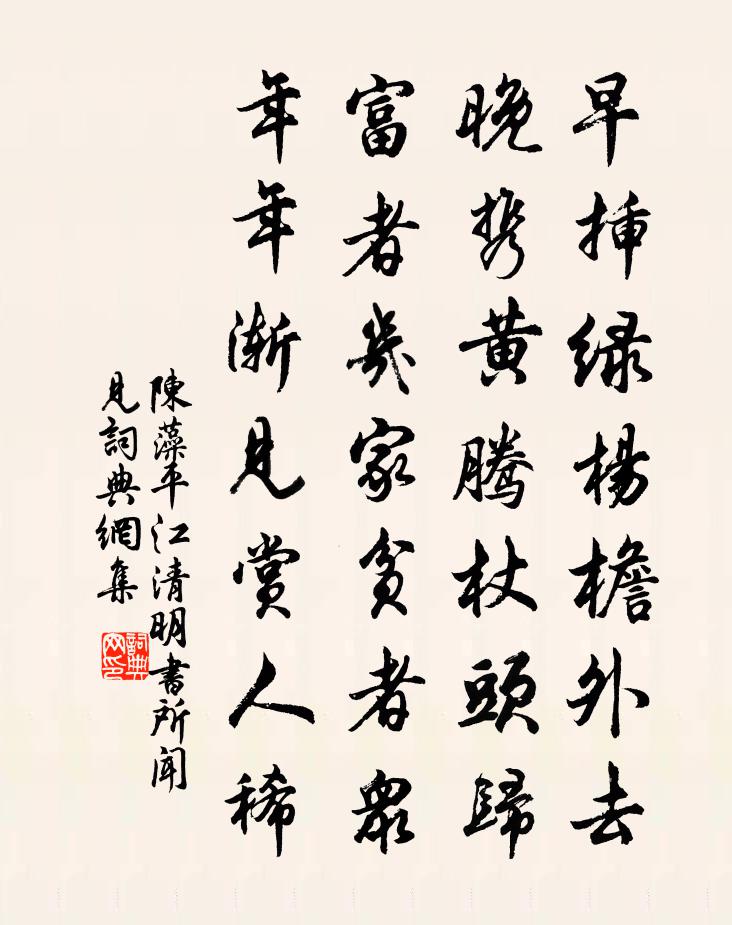 早挿緑楊檐外去
晚携黄騰杖頭歸
富者幾家貧者衆
年年漸見賞人稀
陳藻平江清明書所聞
見詞典網集
詞典网印